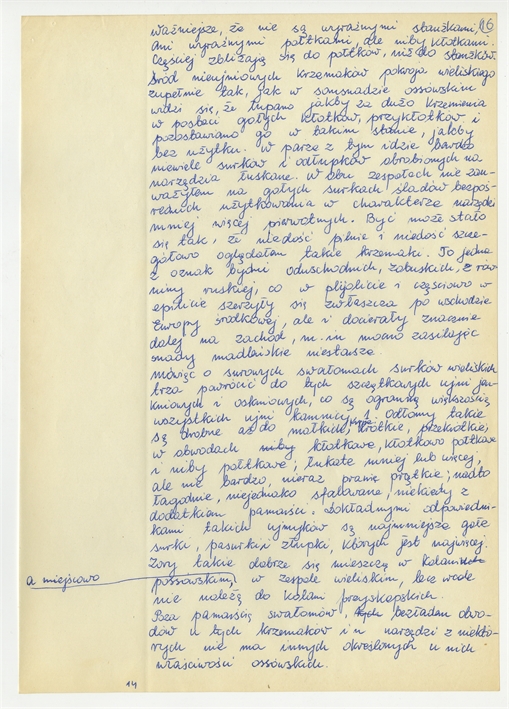 ważniejsze, że nie są wyraźnymi słoużkami, 16
ani wyraźnymi połtkami, ale niby kłotkami.
Częściej zbliżają się do połtków, niż do słoużków.
Śród nieujmiowych krzemaków pokroja wieliskiego
zupełnie tak, jak w sąsiedzie ossowskim
widzi się, że łupano jakby za dużo krzemienia
w postaci gołych kłotków, przykłotków i
pozostawiano go w takim stanie, jakby
bez użytku. W parze z tym idzie bardzo
niewiele surków i odłupków obrobionych na
narzędzia łuskane. W obu zespołach nie zau-
ważyłem na gołych surkach śladów bezpoś-
rednich użytkowania w charakterze narzędzi
mniej więcej pierwotnych. Być może stało
się tak, że niedość pilnie i niedość szcze-
gółowo oglądałem takie krzemaki. To jedna
z oznak bytni oduschodnich, zabuskich, z rów-
niny ruskiej, co w plijolicie i częściowo w
epilicie szerzyły się zwłaszcza po wschodzie
Europy środkowej, ale i docierały znacznie
dalej na zachód, m.in mocno zasilając
smady madlańskie niestarsze.
Mówiąc o surowych swałomach surków wieliskich
trza pawrócić do tych szczątkowych ujmi jan-
kniowych i oskniowych, co są ogromną większością
wszystkich ujmi kamnicy. Odłomy takie
są drobne aż do małkich, krótkie, przekrótkie,
w obwodach niby kłotkowe, kłotkowo połtkowe
i niby połtkowe; łukate mniej lub więcej,
ale nie bardzo, nieraz prawie prątkie; nadto
łagodnie, niejednako sfalowane, niekiedy z
dodatkiem pamarsci. Dokładnymi odpowiedni-
kami takich ujmyków są najmniejsze gołe
surki, pasurki i złupki, których jest najwięcej.
Zory takie dobrze się mieszczą w kolani
a miejscowo
possowskim, w zespole wieliskim, lecz wcale
nie należą do kolani przyskapskich.
Poza pamarsicią swałomów, bezładem obwo-
dów u tych krzemaków i u narzędzi z niektó-
rych nie ma innych określonych u nich
właściwości ossowskich.
14